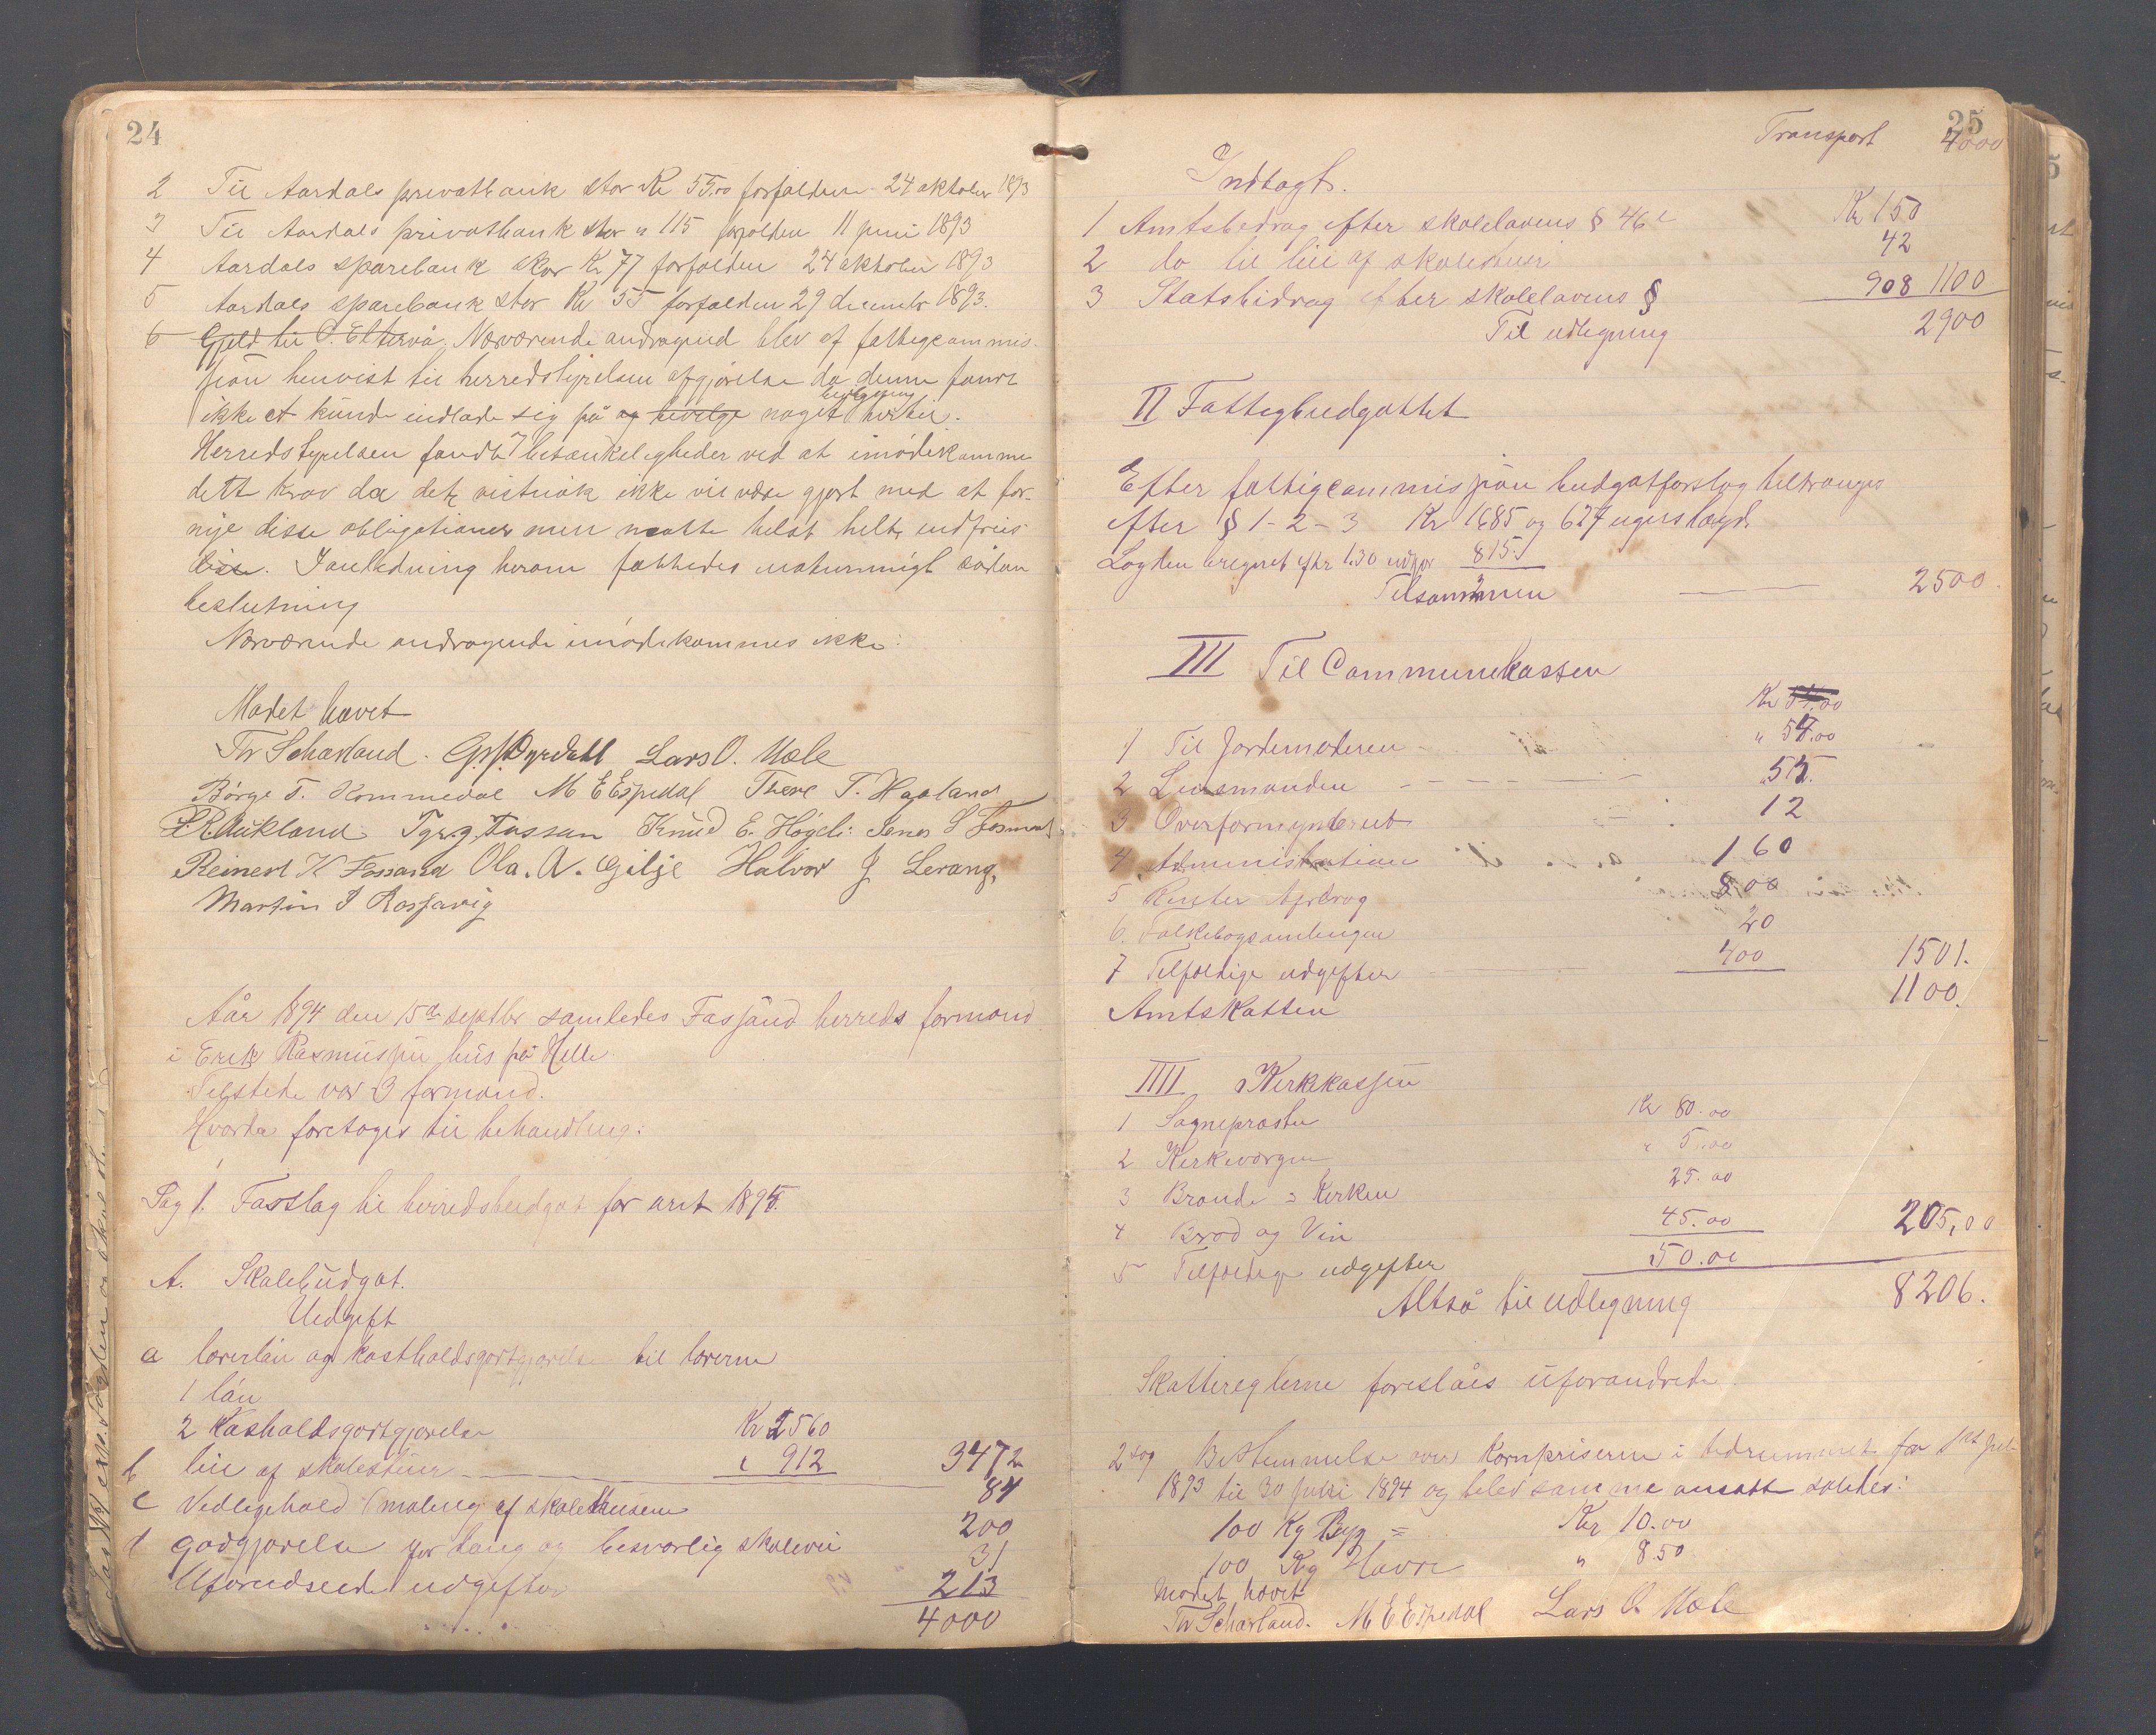 24
2 Til Aardals privatbank stor Kr 55.00 forfalden 24 oktober 1893
3 Til Aardals privatbank stor " 115 forfalden 11 juni 1893
4 Aardals sparebank stor Kr 77 forfalden 24 oktober 1893
5 Aardals sparebank stor Kr 55 forfalden 29 decembr 1893.
6 Gjeld til Nærværende andragend blev af fattigcommis-
sjon henvist til herredstyrelsen afgjørelse da denne fandt
ikke at kunde indlade sig på og bevilge noget hertil.
Herredstyrelsen fandt betænkeligheder ved at imødekomme
dette krav da det vistnok ikke vil være gjort med at for-
nye disse obligationer men måtte helst helt indfries
disse. I anledning herom fattedes enstemmigt sådan
beslutning
Nærværende andragende imødekommes ikke.
Mødet hævet
Th Scharland. Lars O. Mæle
Børge T. Kommedal M E Espedal Thore T. Haaland
Aukland Tørg. Fossan Knud E. Høgeli Jens
Reinert K Fossand Ola. A. Gilje Halvor J Lerang,
Martin J Rossavig
Aår 1894 den 15de septbr samledes Fossand herreds formænd
i Erik Rasmussen hus på Helle
Tilstede var 3 formænd.
Hvorda foretoges til behandling:
Sag 1. Forslag til herredsbudget for aret 1895.
A. Skolebudget.
Udgift
a lærerløn og kostholdsgodtgjørelse til lærerne
1 løn
2 Kostholdsgodtgjørelse Kr 2560
b leie af skolestuer " 912 3472
c Vedligehold (maling af skolehusene 84
d godgjørelse for lang og besværlig skolevei 200
Uforudseede udgifter 31
213
4000
25
Transport 4000
Indtægt.
1 Amtsbedrag efter skolelovens § 46 Kr 150
2 do til leie af skolestuer 42
3 Statsbidrag efter skolelovens § 908 1100
Til udlegning 2900
II Fattigbudgettet
Efter fattigcommissjon budgetforslag tiltrænges
efter § 1-2-3 Kr 1685 og 627 ugers lægd.
Lægden beregnet efter 1.30 udgjør 815.
Tilsammen 2500
III Til Communekassen
Kr
1 Til Jordemoderen " 54.00
2 Lensmanden 55
3 Overformynderiet 12
4 Administration 160
5 Renter Afdrag 800
6. Folkebogsamlingen 20
7 Tilfældige udgifter 400 1501.
Amtskatten 1100.
IIII Kirkekassen
1 Sognepræsten Kr 80.00
2 Kirkeværgen " 5.00
3 Brænde = Kirken 25.00
4 Brød og Vin 45.00 205,00
5 Tilfældige udgifter 50.00
Altså til udlegning 8206.
Skattereglerne foreslåes uforandrede.
2 sag Bestemmelse over kornpriserne i tidrummet fra 1st juli
1893 til 30 juni 1894 og blev samme ansatt således:
100 Kg Byg = Kr 10.00
100 Kg Havre " 8.50
Mødet hævet
Th Scharland. M E Espedal Lars O. Mæle